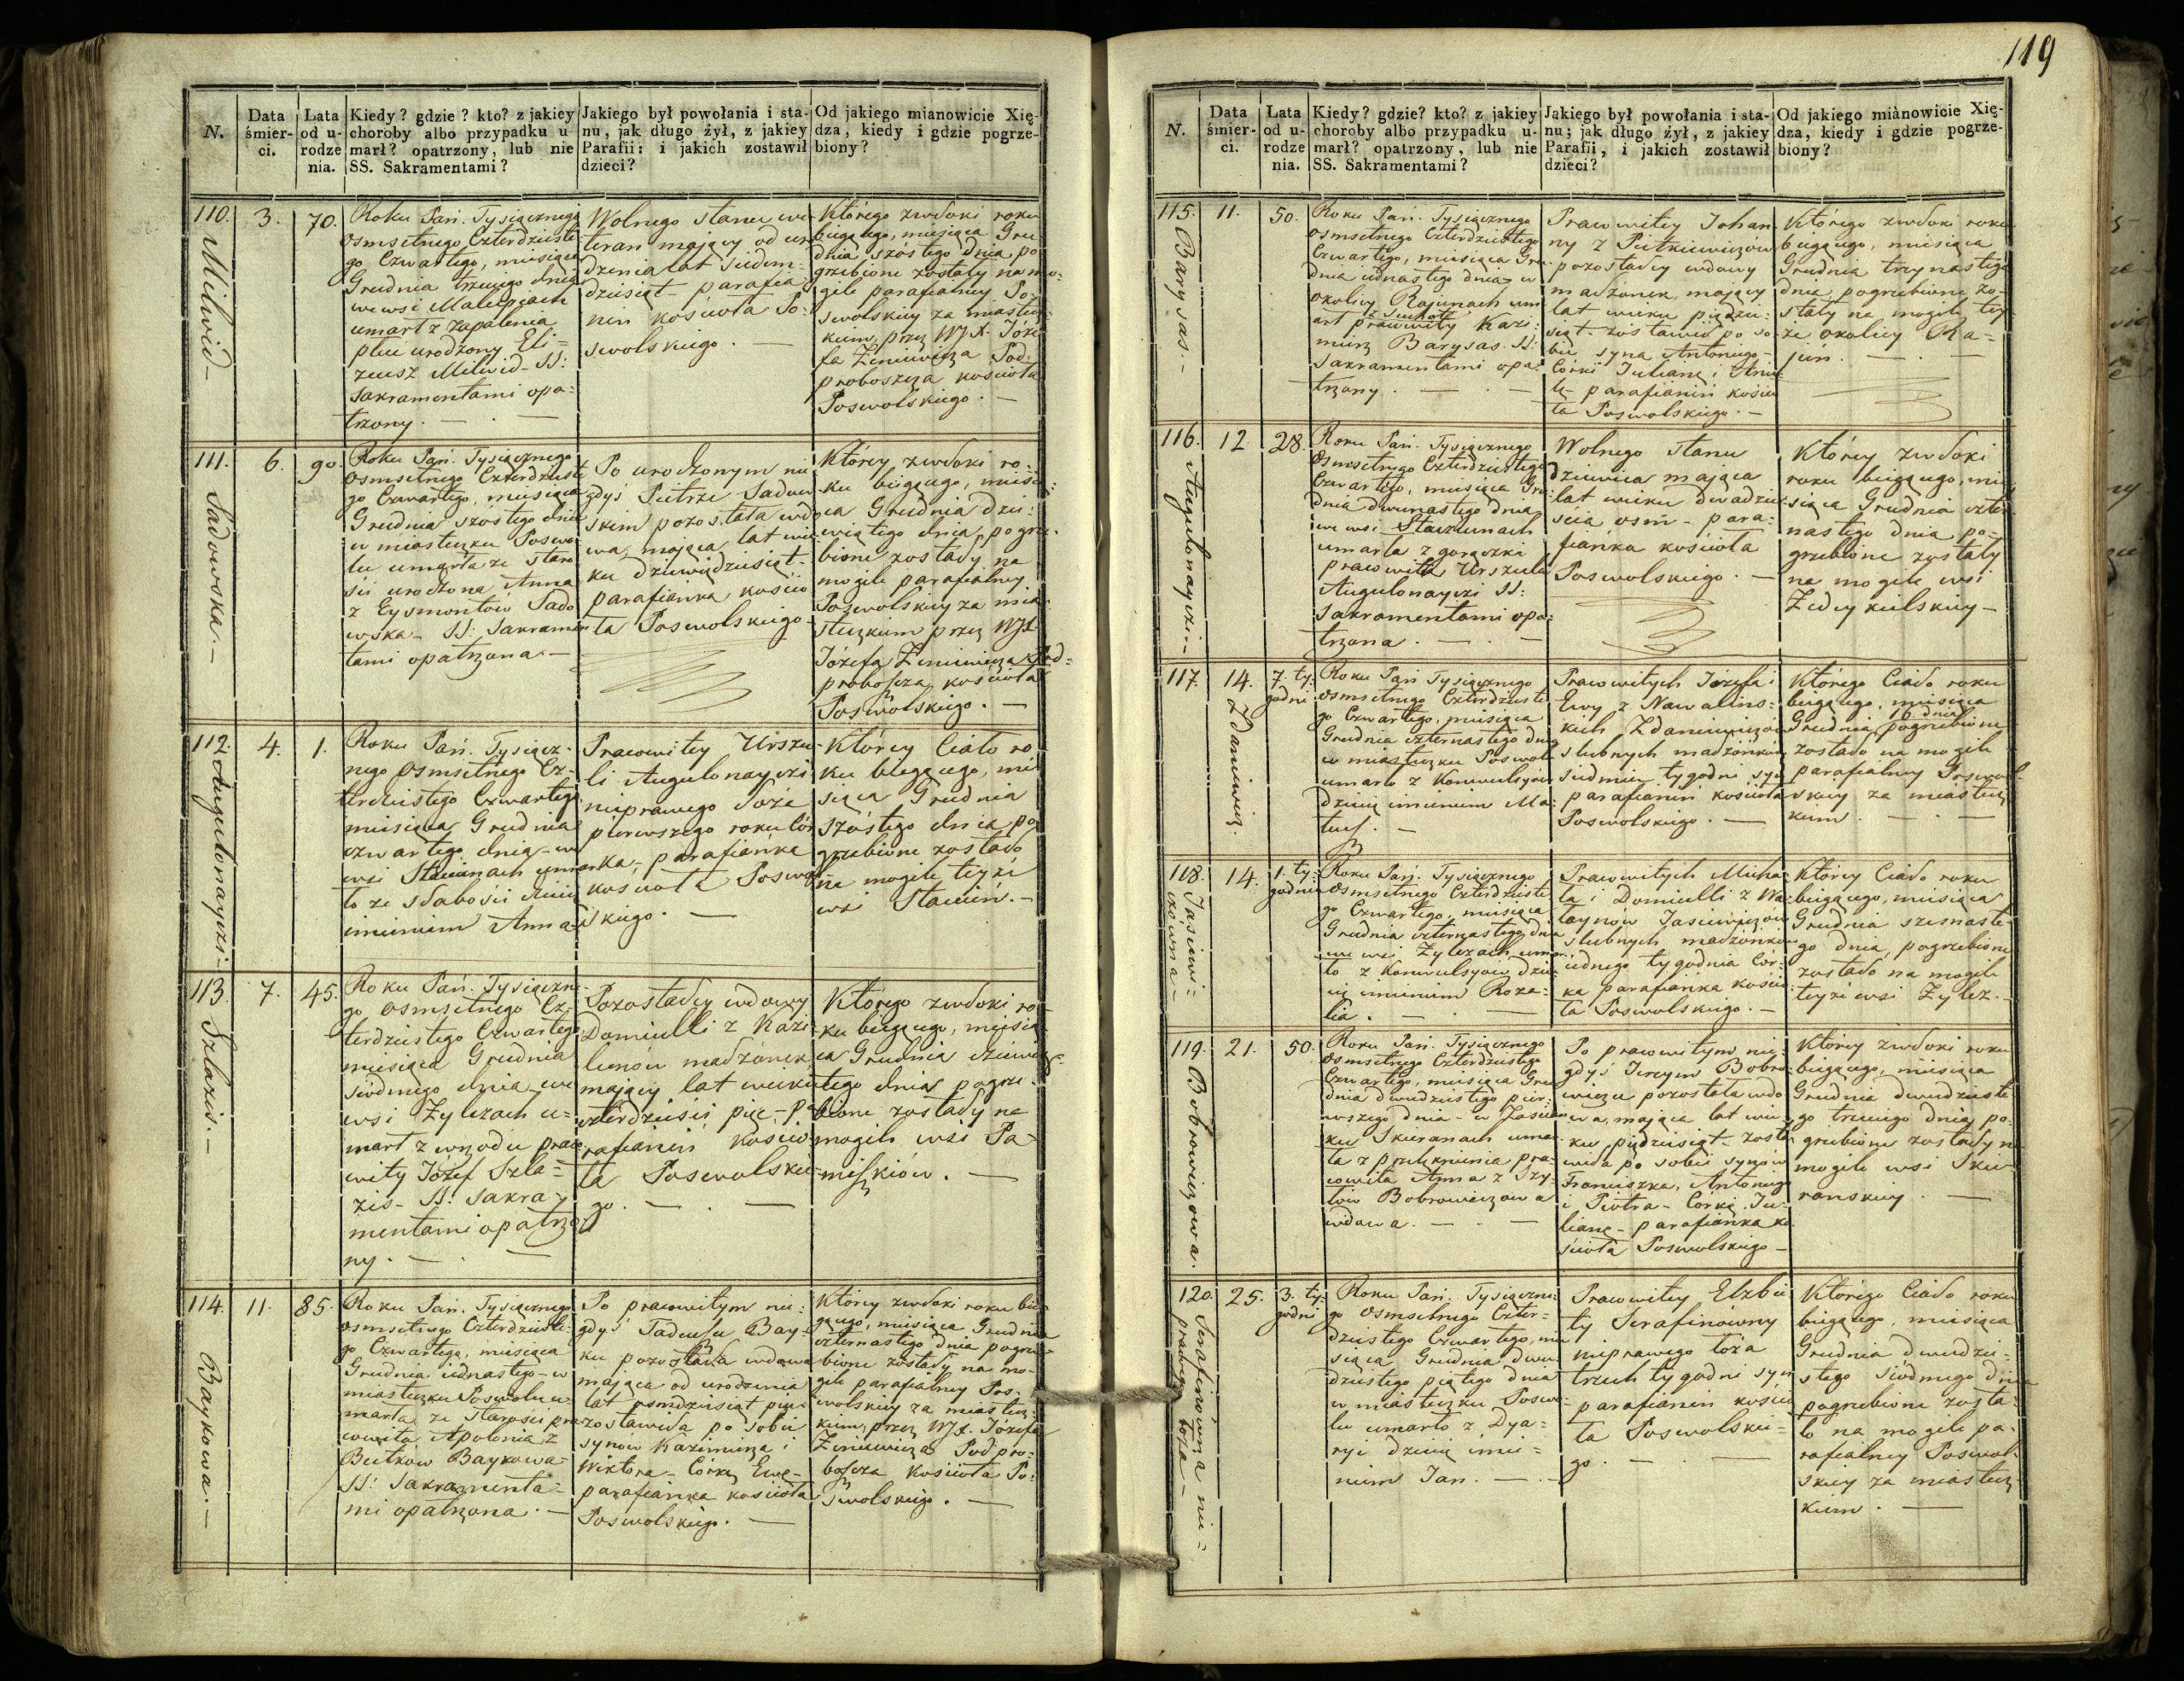 119
N.
Data śmierci.
Lata od urodzenia.
Kiedy? gdzie? kto? z jakiey
choroby albo przypadku u-
marł? opatrzony, lub nie
SS. Sakramentami?
Jakiego był powołania i sta-
nu, jak długo żył, z jakiey
Parafii: i jakich zostawił
dzieci?
Od jakiego mianowicie Xię-
dza, kiedy i gdzie pogrze-
biony?
110. Milwid
3.
70.
Roku Pań. Tysiącznego
Osmsetnego Czterdzieste
go Czwartego, miesiąca
Grudnia trzeciego dnia
we wsi
umarł z zapalenia
płuc urodzony Eli=
zeusz Milwid - SS:
Sakramentami opa=
trzony.
Wolnego stanu we
teran mający od uro
dzenia lat siedm=
dziesiąt - parafia
nin kościoła Po=
swolskiego.
Którego zwłoki roku
bieg ącego, miesiąca Gru
dnia szóstego dnia, po
grzebione zostały na mo
gile parafialney Po
swolskiey za miastecz
kiem, przez WJX. Józe
fa Zieniewicza Pod
proboszcza kościoła
Poswolskiego.
111. Sadowska.
6.
90.
Roku Pań. Tysiącznego
Osmsetnego Czterdzieste
go Czwartego, miesiąca
Grudnia szóstego dnia
w miasteczku Poswo
lu umarła ze staro
ści urodzona Anna
z Eysmontów Sado
wska - SS: Sakramen
tami opatrzona
Po urodzonym nie
gdyś Pietrze Sadow
skim pozostała wdo
wa, mająca lat wie
ku dziewiędziesiąt
parafianka kościo
ła Poswolskiego
Którey zwłoki ro=
ku biegącego, miesi
ąca Grudnia dzie=
wiątego dnia, pogrze
bione zostały na
mogile parafialney
Poswolskiey za mia
steczkiem przez WJX
Józefa Zieniewicza Pod=
proboszcza kościoła
Poswolskiego.
112. Augulonayczi
4.
1.
Roku Pań. Tysiącz-
nego Osmsetnego Cz-
terdziestego Czwartego
miesiąca Grudnia
czwartego dnia - we
wsi Stawianach umar
ło ze słabości dziecie
imieniem Anna
Prawowitey Urszu-
li Augulonayczi
nieprawego łoża
pierwszego roku cór
ka, parafianka
kościoła Poswol
skiego.
Którey Ciało ro
ku biegącego, mie
siąca Grudnia
szóstego dnia po
grzebione zostało
na mogile teyże
wsi
113. Szlazis.
7.
45.
Roku Pań. Tysiączne-
go Osmsetnego Cz-
terdziestego Czwartego
miesiąca Grudnia
siódmego dnia we
wsi Zylezach u=
marł z wrzodu prawo
wity Józef Szla=
zis - SS: Sakra
mentami opatrzo
ny.
Pozostałey wdowy
Domiulli z Kazi
lunów małżonek
mający lat wieku
czterdzieści pięć - pa
rafianin kościo
ła Poswolskie
go.
Którego zwłoki ro
ku biegącego, miesią
ca Grudnia dziewią
tego dnia pogrze
bione zostały na
mogile wsi Pa
miszkiów.
114. Baykowa.
11.
85.
Roku Pań. Tysiącznego
Osmsetnego Czterdzieste
go Czwartego, miesiąca
Grudnia iednastego - w
miasteczku Poswolu u-
marła ze starości pra
wowita Apolonia z
Butków Baykowa
SS: Sakramenta=
mi opatrzona.
Po prawowitym nie=
gdyś Tadeuszu Bay
ku pozostała wdowa
mająca od urodzenia
lat osmdziesiąt pięć
zostawiła po sobie
synów Kazimierza i
Wiktora - Córkę Ewę -
parafianka kościoła
Poswolskiego.
Którey zwłoki roku bie
gącego, miesiąca Grudnia
czternastego dnia pogrze
bione zostały na mo=
gile parafialney Pos-
wolskiey za miastecz-
kiem, przez WJX. Józefa
Zieniewicza Podpro=
boszcza kościoła Po=
swolskiego.
N.
Data śmierci.
Lata od urodzenia.
Kiedy? gdzie? kto? z jakiey
choroby albo przypadku u-
marł? opatrzony, lub nie
SS. Sakramentami?
Jakiego był powołania i sta-
nu; jak długo żył, z jakiey
Parafii, i jakich zostawił
dzieci?
Od jakiego miànowicie Xię-
dza, kiedy i gdzie pogrze-
biony?
115. Barysas.
11.
50.
Roku Pań. Tysiącznego
Osmsetnego Czterdziestego
Czwartego, miesiąca Gru
dnia iednastego dnia w
okolicy Rajunach um
z Suchot
arł prawowity Kazi=
mierz Barysas. SS:
Sakramentami opa=
trzony.
Prawowitey Johan
ny z Pietkiewiczow
pozostałey wdowy
małżonek, mający
lat wieku pięćdzie=
siąt. zostawił po so
bie syna Antoniego -
Córki Julianę i Anie
lę - parafianin kościo
ła Poswolskiego.
Którego zwłoki roku
biegącego, miesiąca
Grudnia trzynastego
dnia, pogrzebione zo-
stały na mogile tey
że okolicy Ra=
jun.
116. Augulonayczi
12.
28.
Roku Pań. Tysiącznego
Osmsetnego Czterdziestego
Czwartego, miesiąca Gru
dnia dwunastego dnia
we wsi
umarła z gorączki
prawowita Urszula
Augulonayczi SS:
Sakramentami opa=
trzona.
Wolnego stanu
dziewica mająca
lat wieku dwadzie
ścia osm - para=
fianka kościoła
Poswolskiego.
Którey zwłoki
roku biegącego, mie
siąca Grudnia czter
nastego dnia po-
grzebione zostały
na mogile wsi
Zedeykielskiey
117. Zdaniewicz.
14.
7. ty
godni
Roku Pań Tysiącznego
Osmsetnego Czterdzieste
go Czwartego, miesiąca
Grudnia czternastego dnia
w miasteczku Poswolu
umarło z Konwulsyow
dziecię imieniem Ma=
teusz.
Prawowitych Józefa i
Ewy z Nawalins=
kich Zdaniewiczów
slubnych małżonków
siedmiu tygodni syn
parafianin kościoła
Poswolskiego.
Którego Ciało roku
biegącego, miesiąca
16 dnia
Grudnia pogrzebione
zostało na mogile
parafialney Poswol-
skiey za miastecz
kiem.
118. Jasiewi=
czówna
14.
1. ty=
godnia
Roku Pań. Tysiącznego
Osmsetnego Czterdzieste
go Czwartego, miesiąca
Grudnia czternastego dnia
we wsi Zylezach umar
ło z Konwulsyow dzie
cię imieniem Roza=
lia.
Prawowitych Micha
ła i Domiulli z Wa
łaynow Jasiewiczow
slubnych małżonków
iednego tygodnia Cór=
ka parafianka kościo
ła Poswolskiego.
Którey Ciało roku
biegącego, miesiąca
Grudnia szesnaste-
go dnia, pogrzebione
zostało na mogile
teyże wsi Zylez.
119. Bobrowiczowa.
21.
50.
Roku Pań. Tysiącznego
Osmsetnego Czterdziestego
Czwartego, miesiąca Gru
dnia dwudziestego pier
wszego dnia - w Zaścian
ku Skieranach umar
ła z przelęknienia pra
wowita Anna z Szy=
łów Bobrowiczowa
wdowa.
Po prawowitym nie=
gdyś Bobro=
wiczu pozostała wdo
wa, mająca lat wie
ku pięćdziesiąt - zosta
wiła po sobie synów
Franciszka, Antoniego
i Piotra - Córkę Ju=
lianę - parafianka ko
ścioła Poswolskiego
Którey zwłoki roku
biegącego, miesiąca
Grudnia dwudzieste
go trzeciego dnia po-
grzebione zostały na
mogile wsi Skie
ranskiey.
120. Serafinówna nie=
prawego łoża
25.
3. ty
godni
Roku Pań. Tysiączne=
go Osmsetnego Czter=
dziestego Czwartego, mie
siąca Grudnia dwu
dziestego piątego dnia
w miasteczku Poswo
lu umarło z Dya=
ryi dziecię imie=
niem Jan.
Prawowitey Elżbie
ty Serafinówny
nieprawego łoża
trzech tygodni syn
parafianin kościo
ła Poswolskie=
go.
Którego Ciało roku
biegącego, miesiąca
Grudnia dwudzie-
stego siódmego dnia
pogrzebione zosta=
ło na mogile pa-
rafialney Poswol-
skiey za miastecz
kiem.